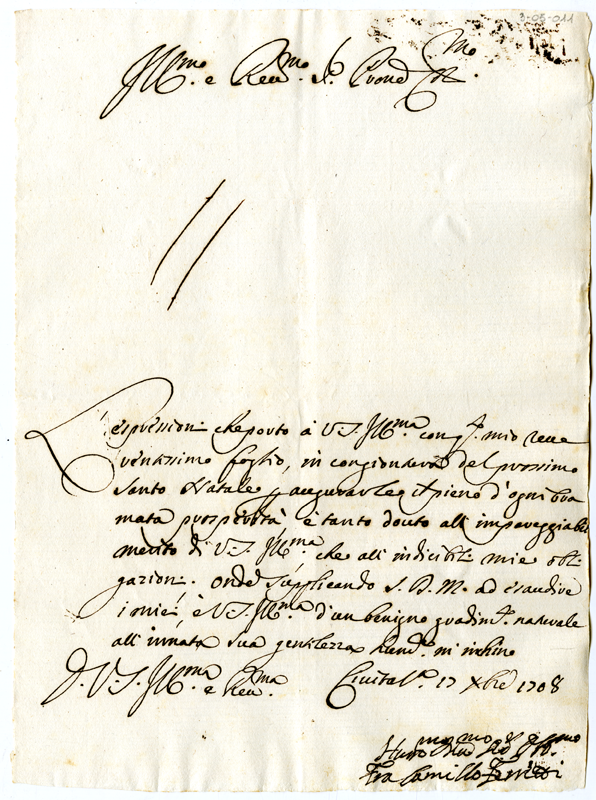 3-05-011
Ill.mo e Rev.mo S.r Prone Col.mo
L'espression che porto à V.S. Ill.ma con q.to mio reve
rentissimo foglio, in congiontura del prossimo
Santo Natale p augurarle il pieno d'ogni bra
mata prosperità è tanto douto all impareggiabil
merito di V.S. Ill.ma che all' indicibil mie obli
gazion. onde supplicando S.D.M. ad esaudire
i miei, è V.S. Ill.ma d'un benigno gradim.to naturale
all' innata sua gentilezza hum.te m'inchino
D. V.S. Ill.ma e Rev.ma Civita V.a 17 Xbre 1708
Hum.mo
Fra Camillo